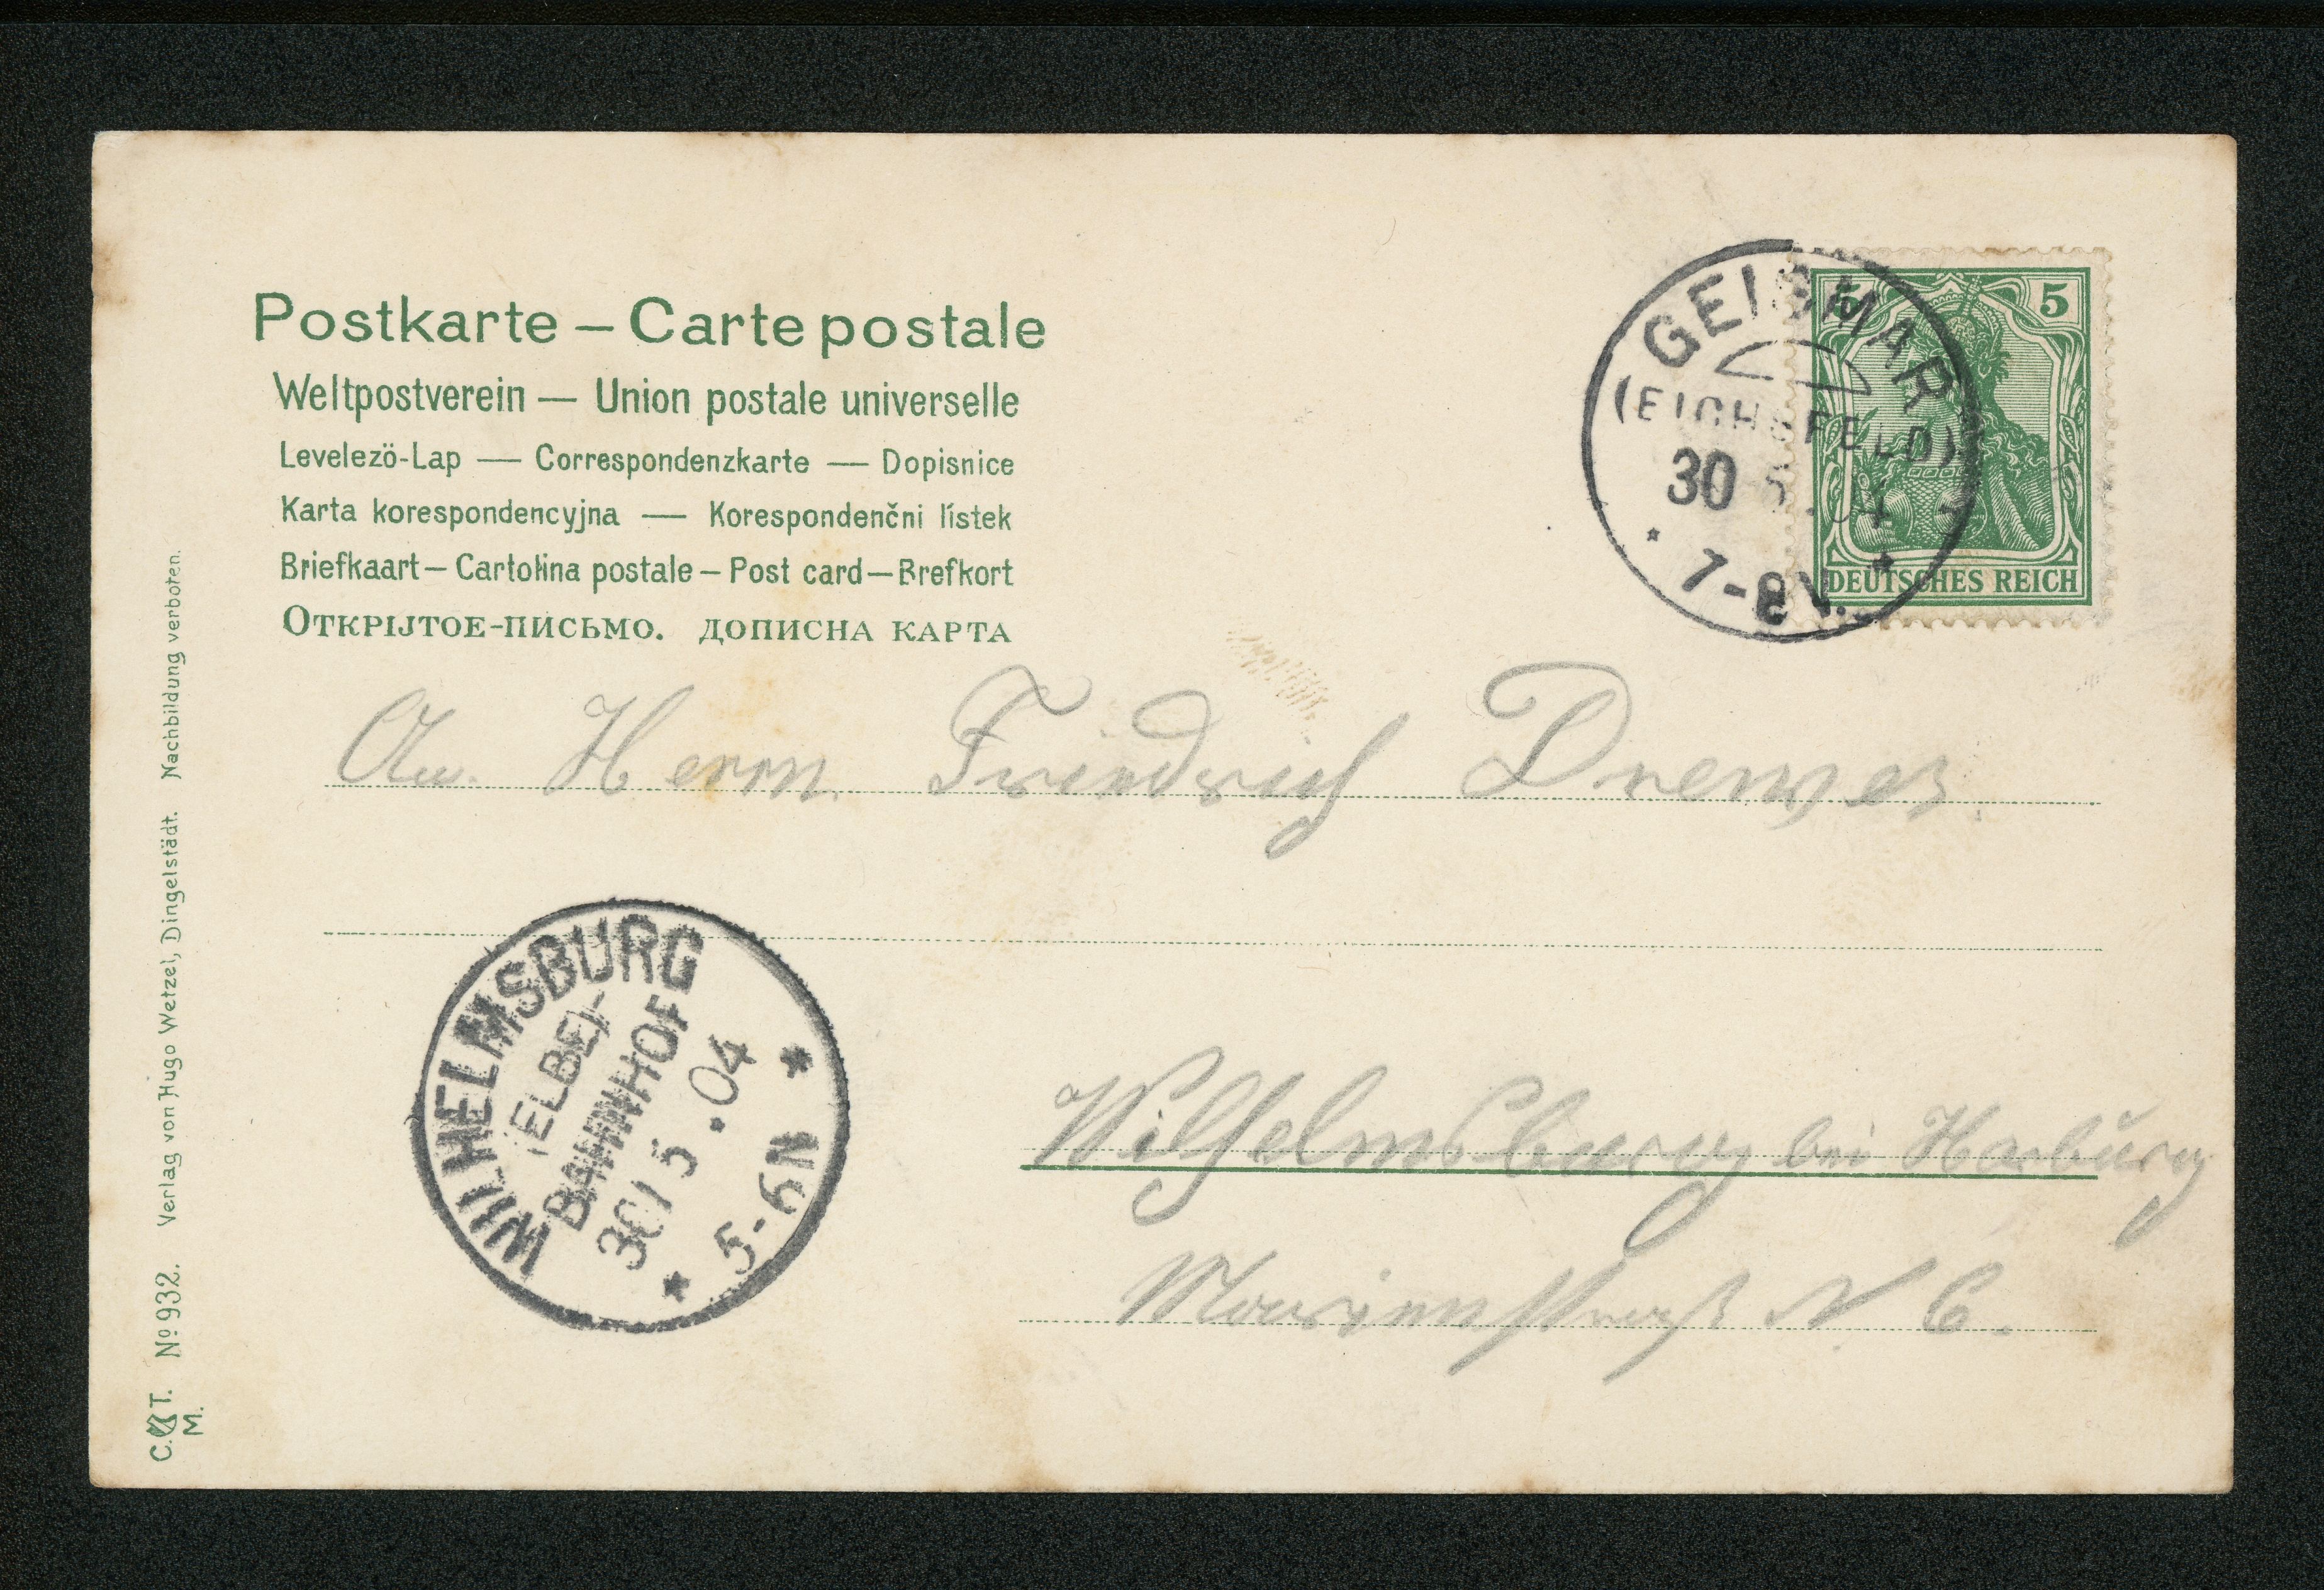 Postkarte – Carte postale
Weltpostverein — Union postale universelle
Levelezö-Lap — Correspondenzkarte — Dopisnice
Karta korespondencyjna — Korespondenčni listek
Briefkaart – Cartolina postale – Post card – Brefkort
Откріјтое-письмо. дописна карта
GEISMAR
(EICHSFELD)
30 5 .04
7-8 V.
5 5
DEUTSCHES REICH
An Herrn Friedrich Drewes.
WILHELMSBURG
(ELBE)
BAHNHOF
30/5 .04
5-6N
Wilhelmsburg bei Harburg
Marienstraße N 6.
C. T. M. No 932. Verlag von Hugo Wetzel, Dingelstädt. Nachbildung verboten.